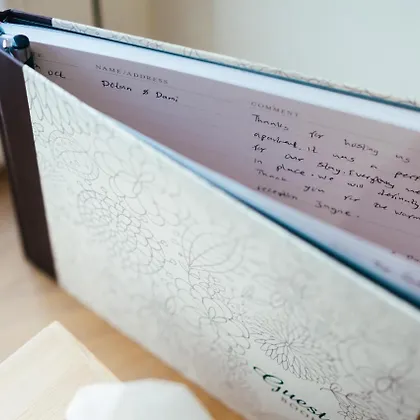 Oct
NAME/ADDRESS
Dolan & Dami
COMMENT
Thanks for hosting us
apartment. it was a
for our stay. Everything
in place. we will
Thank you for the warm
reception Jayne.
Guest